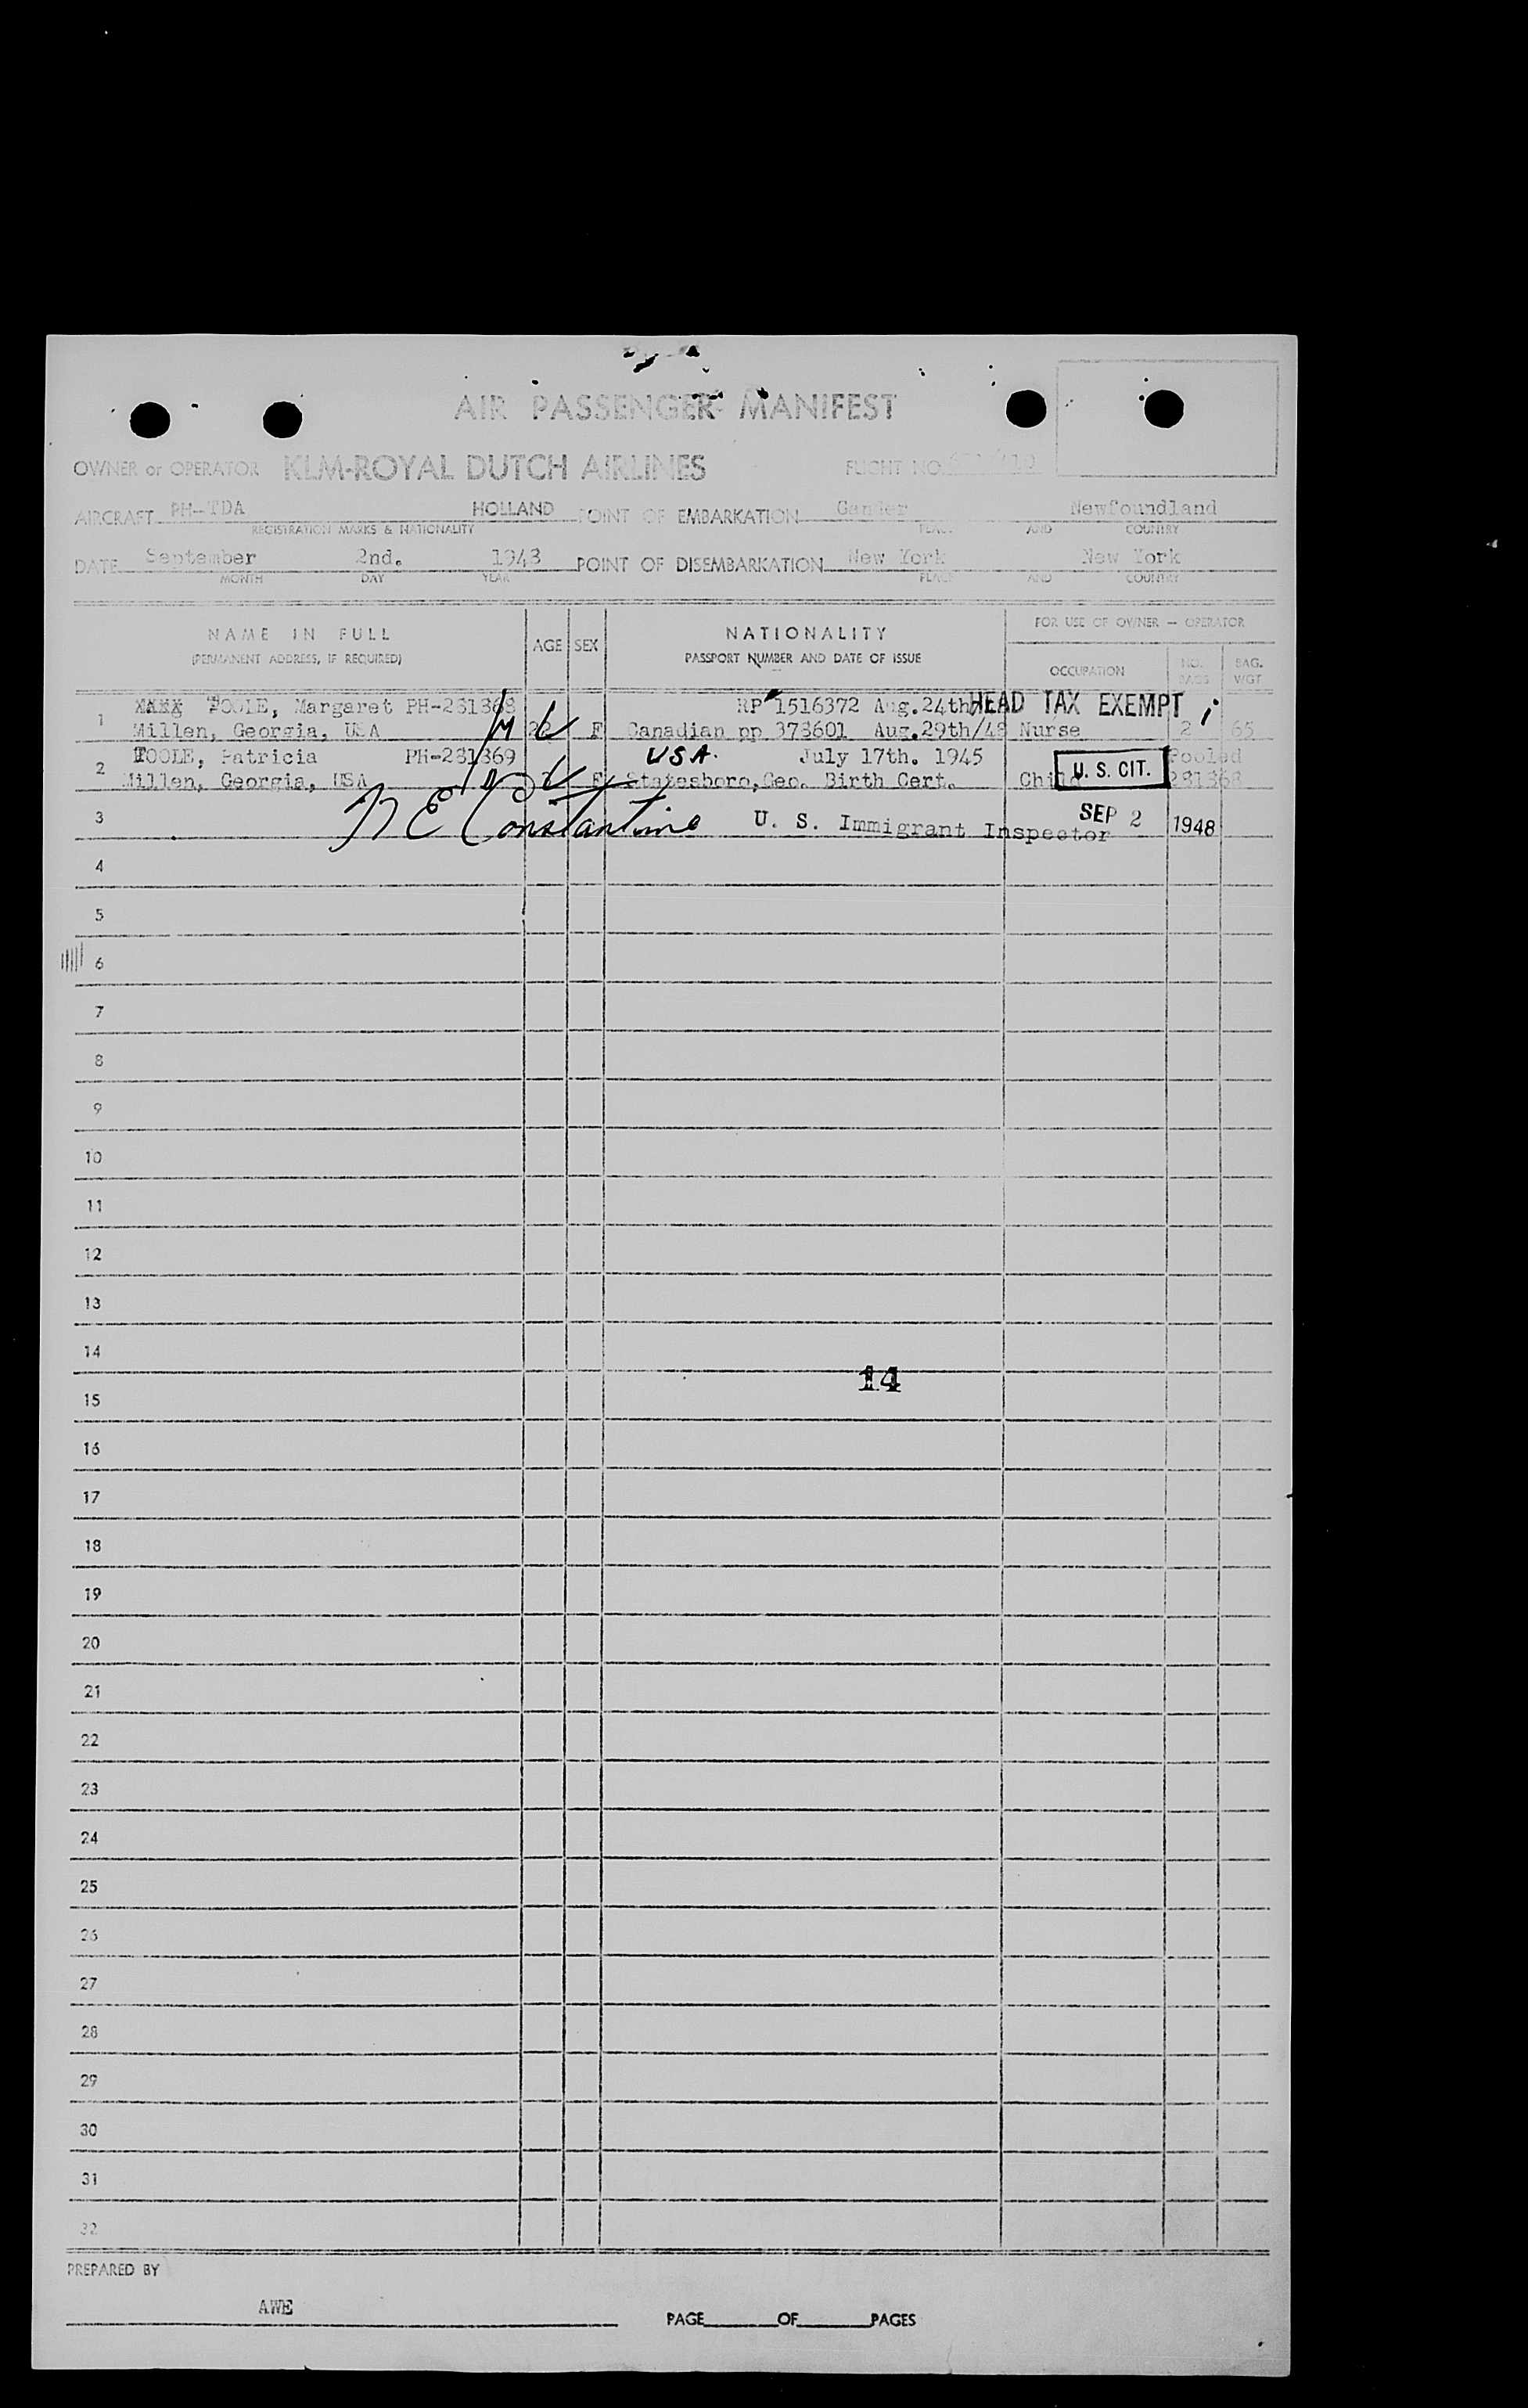 AIR PASSENGER MANIFEST
OWNER or OPERATOR KLM-ROYAL DUTCH AIRLINES FLIGHT NO.
AIRCRAFT PH-TDA HOLLAND POINT OF EMBARKATION Gander Newfoundland
REGISTRATION MARKS & NATIONALITY PLACE AND COUNTRY
DATE September 2nd. 1948 POINT OF DISEMBARKATION New York New York
MONTH DAY YEAR PLACE AND COUNTRY
NAME IN FULL
(PERMANENT ADDRESS, IF REQUIRED)
AGE SEX
NATIONALITY
PASSPORT NUMBER AND DATE OF ISSUE
FOR USE OF OWNER — OPERATOR
OCCUPATION NO. BAGS BAG. WGT
1 TOOLE, Margaret PH-281368 RP 1516372 Aug.24th HEAD TAX EXEMPT
Millen, Georgia, USA M F Canadian pp 378601 Aug.29th/48 Nurse 2 65
2 TOOLE, Patricia PH-281369 USA. July 17th. 1945 U. S. CIT. Pooled
Millen, Georgia, USA F Statesboro,Geo. Birth Cert. Child 281368
3 N E Constantine U. S. Immigrant Inspector SEP 2 1948
4
5
6
7
8
9
10
11
12
13
14
14
15
16
17
18
19
20
21
22
23
24
25
26
27
28
29
30
31
32
PREPARED BY
AWE
PAGE OF PAGES